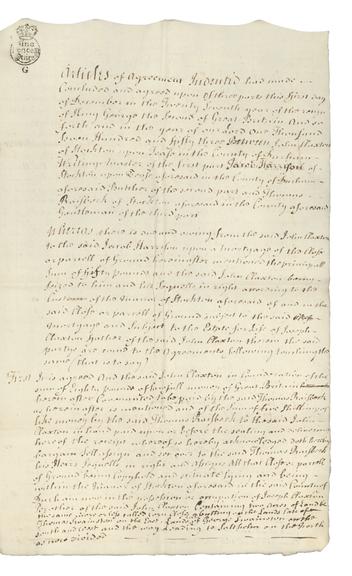 Articles of Agreement Indented had made
Concluded and agreed upon of three parts this first day
of December in the Twenty Seventh year of the reign
of King George the Second of Great Britain And so
forth and in the year of our Lord One Thousand
Seven Hundred and fifty three Between John Claxton
of Stockton upon Tease in the County of Durham
Writing Master of the first part Jacob Harrison of
Stockton upon Tease aforesaid in the County of Durham
aforesaid Butcher of the second part and Thomas
Raisbeck of Stockton aforesaid in the County aforesaid
Gentleman of the third part
Whereas there is one and owing from the said John Claxton
to the said Jacob Harrison upon a Mortgage of the Close
or parcell of Ground hereinafter mentioned the principall
Sum of fifty Pounds and the said John Claxton being
seized to him and his Sequells in right according to the
Custom of the Manor of Stockton aforesaid of and in the
said Close or parcell of Ground subject to the said
Mortgage and Subject to the Estate for Life of Joseph
Claxton Father of the said John Claxton therein the said
partys are come to the Agreements following touching the
same that is to say
First It is agreed And the said John Claxton in Consideration of the
sum of Eighty Pounds of lawfull money of Great Britain
herein after Covenanted to be paid by the said Thomas Raisbeck
as herein after is mentioned and of the Sum of five Shillings of
like money by the said Thomas Raisbeck to the said John
Claxton in hand paid upon or before the sealing and delivering
hereof the receipt whereof is hereby acknowledged doth hereby
bargain Sell assign and set over to the said Thomas Raisbeck
his Heirs Sequells in right and Assigns All that Close or parcell
of Ground being Copyhold and situate lying and being
within the Manor of Stockton aforesaid in the said County of
Durham now in the possession or occupation of Joseph Claxton
Together of the said John Claxton Containing two Acres of Land be
the same more or less called abutting on the Lands late of
Thomas Swainston on the East Lands of George Swainston on the
South and West and the way Leading to on the North
as now divided
G